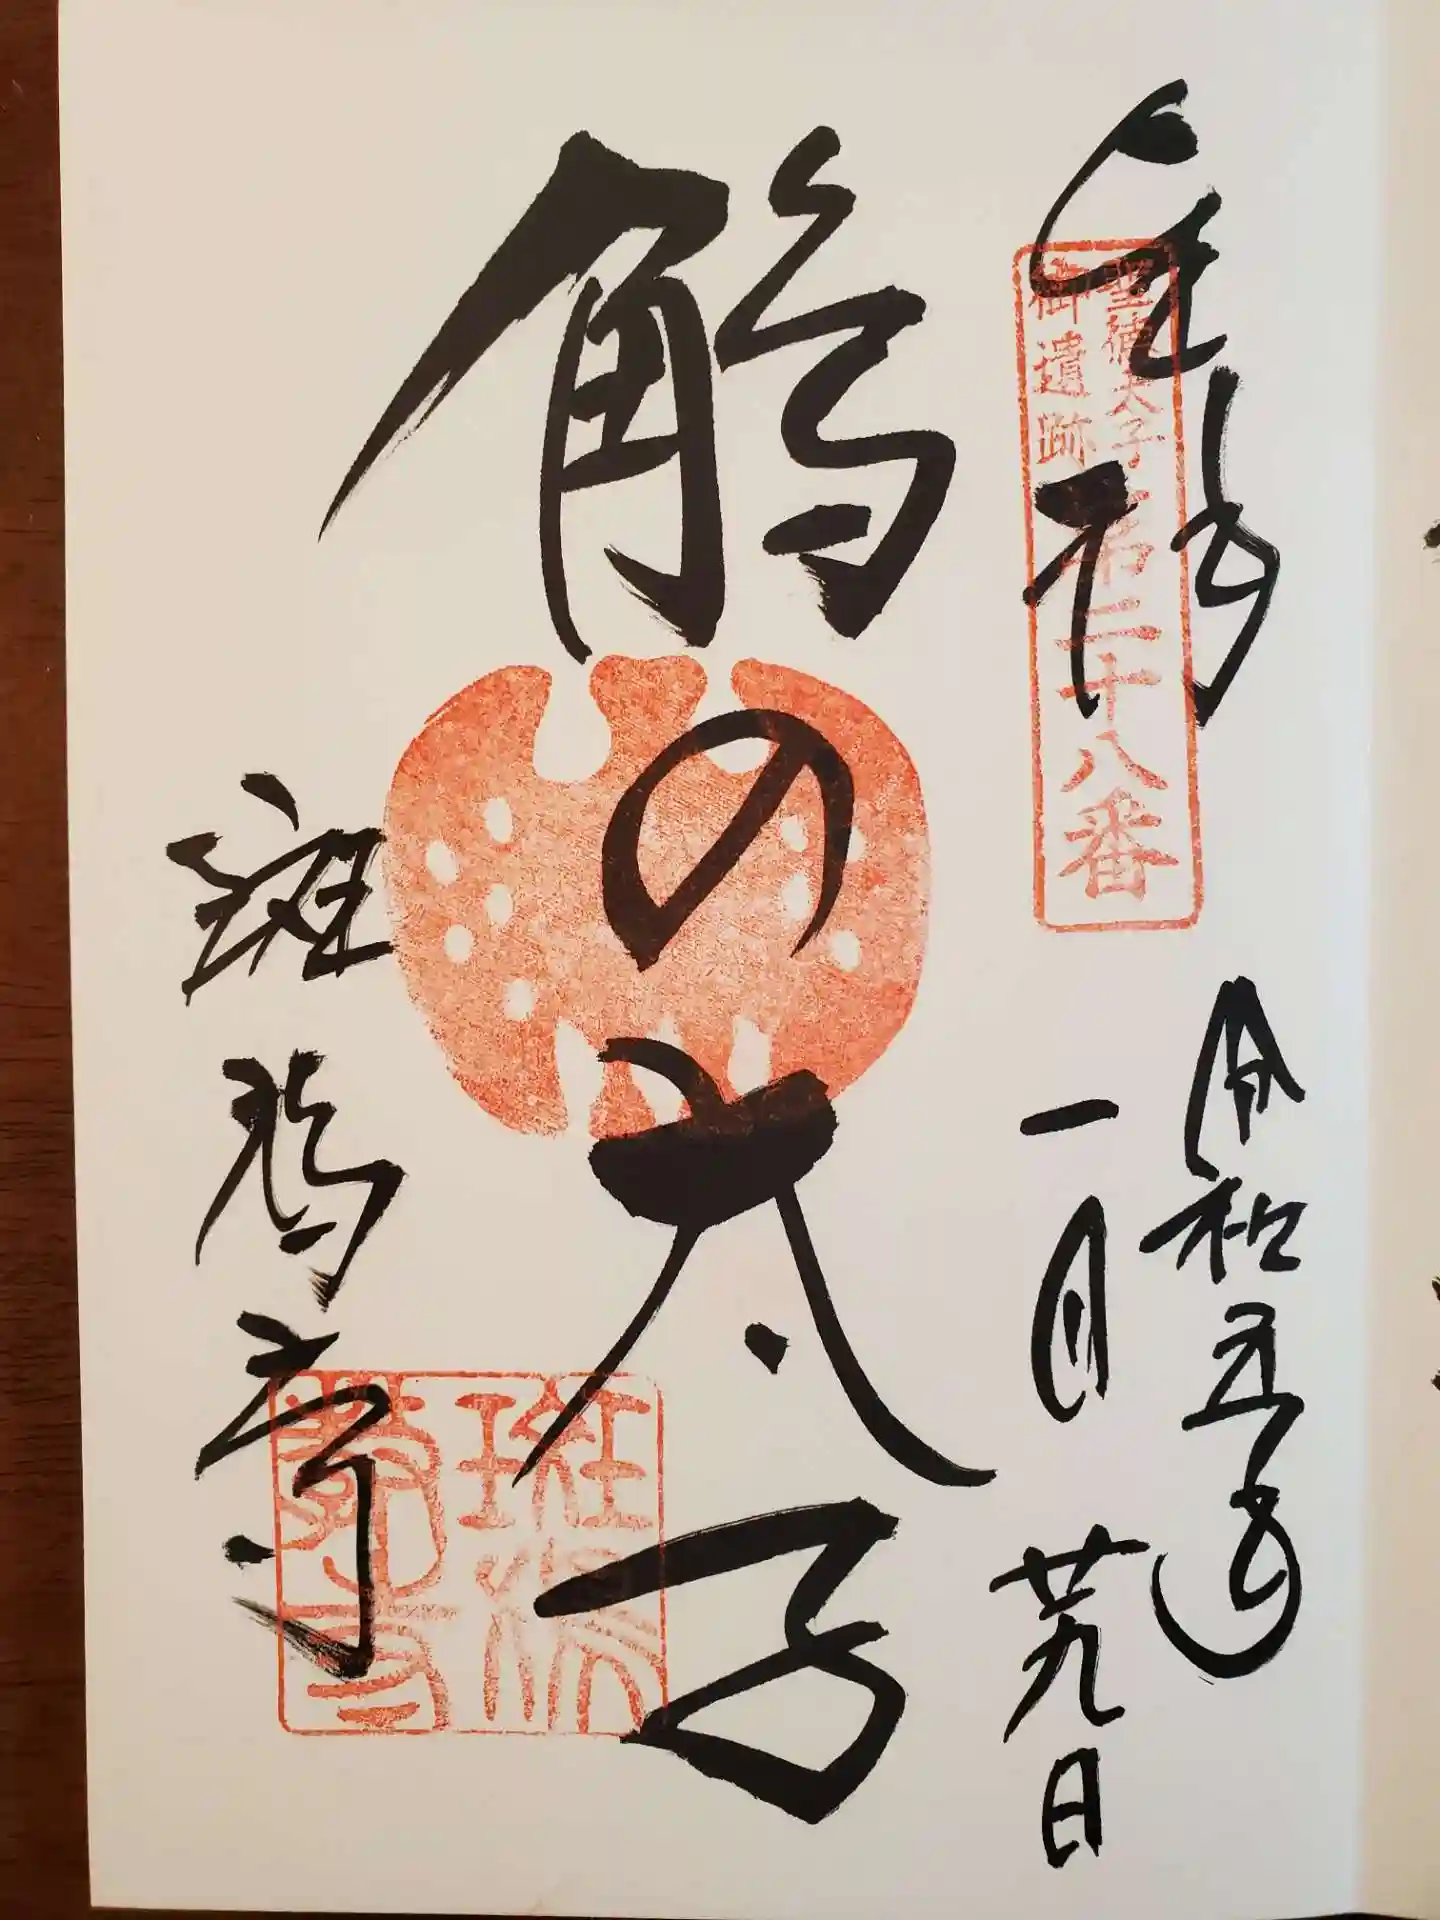 奉拝
聖徳太子
御遺跡
第二十八番
令和五年
一月廿九日
鵤の太子
斑鳩寺